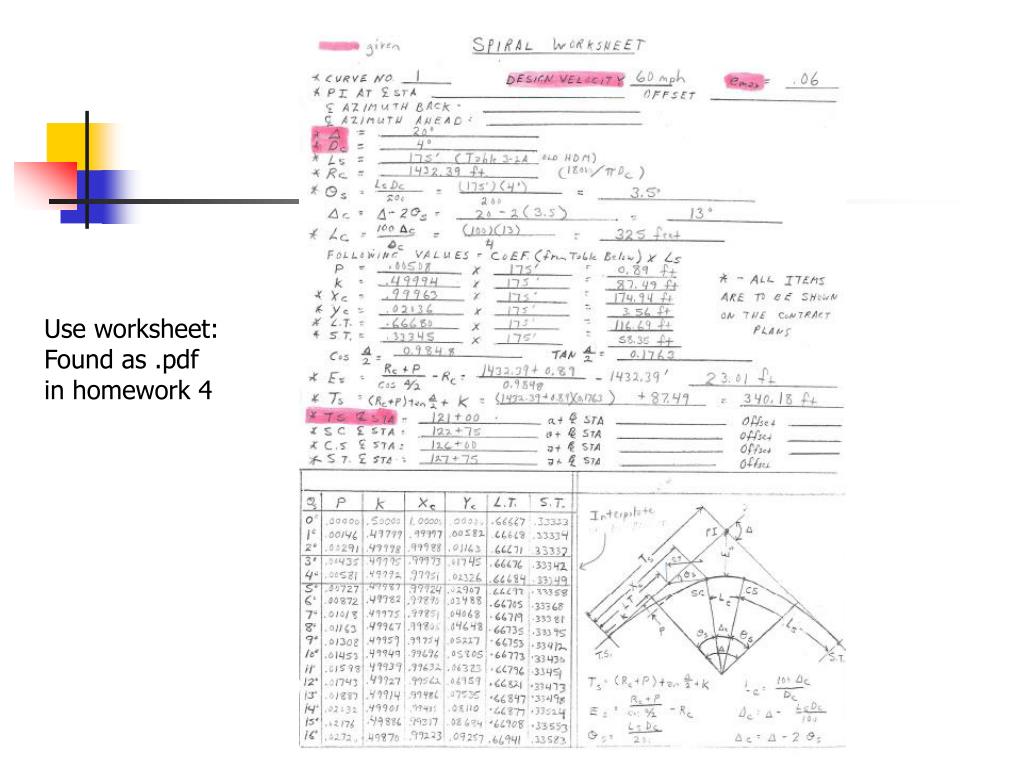 Use worksheet:
Found as .pdf
in homework 4
given
SPIRAL WORKSHEET
* CURVE NO. 1 DESIGN VELOCITY 60 mph emax = .06
* PI AT ℄ STA OFFSET
℄ AZIMUTH BACK -
℄ AZIMUTH AHEAD:
* Δ = 20°
* Dc = 4°
* Ls = 175' (Table 3-2A OLD HDM)
* Rc = 1432.39 ft (1800/πDc)
* Θs = LsDc/200 = (175')(4°)/200 = 3.5°
Δc = Δ-2Θs = 20 - 2(3.5) = 13°
* Lc = 100 Δc/Dc = (100)(13)/4 = 325 feet
FOLLOWING VALUES = COEF. (from Table Below) x Ls
P = .00508 x 175' = 0.89 ft
K = .49994 x 175' = 87.49 ft
* Xc = .99963 x 175' = 174.94 ft
* Yc = .02036 x 175' = 3.56 ft
* L.T. = .66680 x 175' = 116.69 ft
* S.T. = .33345 x 175' = 58.35 ft
* - ALL ITEMS
ARE TO BE SHOWN
ON THE CONTRACT
PLANS
Cos Δ/2 = 0.9848 TAN Δ/2 = 0.1763
* Es = Rc+P/cos Δ/2 - Rc = 1432.39+0.89/0.9848 - 1432.39' 23.01 ft
* Ts = (Rc+P)tan Δ/2 + K = (1432.39+0.89)(0.1763) + 87.49 = 340.18 ft
* TS ℄ STA = 121+00 at ℄ STA Offset
* SC ℄ STA: 122+75 at ℄ STA Offset
* C.S ℄ STA: 126+00 at ℄ STA Offset
* S.T. ℄ STA: 127+75 at ℄ STA Offset
Θs P K Xc Yc L.T. S.T.
0° .00000 .50000 1.0000 .0000 .66667 .33333
1° .00146 .49999 .99997 .00582 .66668 .33334
2° .00291 .49998 .99988 .01163 .66671 .33337
3° .00435 .49995 .99973 .01745 .66676 .33342
4° .00581 .49992 .99951 .02326 .66684 .33349
5° .00727 .49987 .99924 .02907 .66693 .33358
6° .00872 .49982 .99890 .03488 .66705 .33368
7° .01018 .49975 .99851 .04068 .66719 .33381
8° .01163 .49967 .99805 .04648 .66735 .33395
9° .01308 .49959 .99754 .05227 .66753 .33412
10° .01453 .49949 .99696 .05805 .66773 .33430
11° .01598 .49939 .99632 .06383 .66796 .33451
12° .01743 .49927 .99562 .06959 .66821 .33473
13° .01887 .49914 .99486 .07535 .66847 .33498
14° .02032 .49901 .99405 .08110 .66877 .33524
15° .02176 .49886 .99317 .08684 .66908 .33553
16° .02320 .49870 .99223 .09257 .66941 .33583
Interpolate
PI Δ
Ts ST Es
Xc Θs SC CS
LT Lc
P Ls
Θs Δc Θs
T.S. Δ S.T.
Ts = (Rc+P)tan Δ/2 + K Lc = 100 Δc/Dc
Es = Rc+P/cos Δ/2 - Rc Δc = Δ - LsDc/100
Θs = LsDc/200 Δc = Δ - 2 Θs